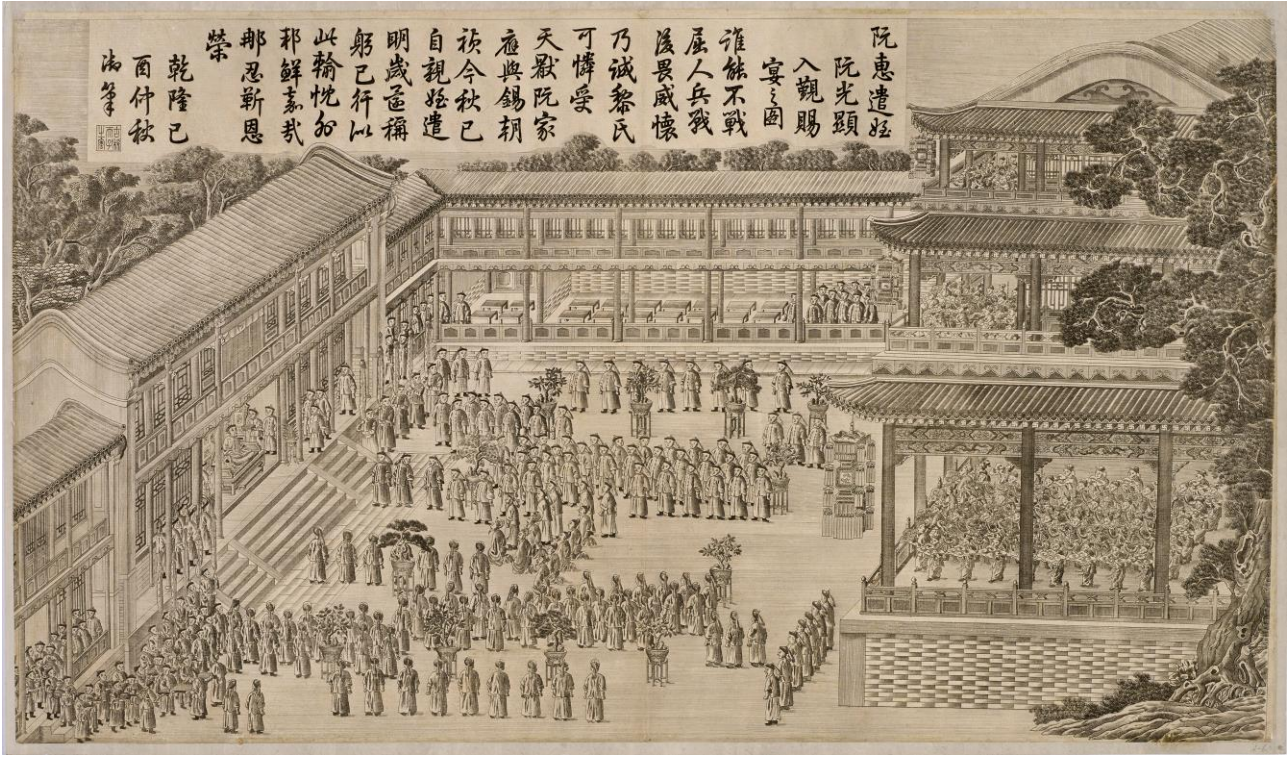 阮惠遣姪
阮光顯
入覲賜
宴之圖
誰能不戰
屈人兵戰
後畏威懷
乃誠黎氏
可憐受
天厭阮家
應與錫朝
禎今秋已
自親姪遣
明歲稱
躬己行似
此輸忱外
邦鮮嘉哉
那忍靳恩
榮
乾隆己
酉仲秋
御筆